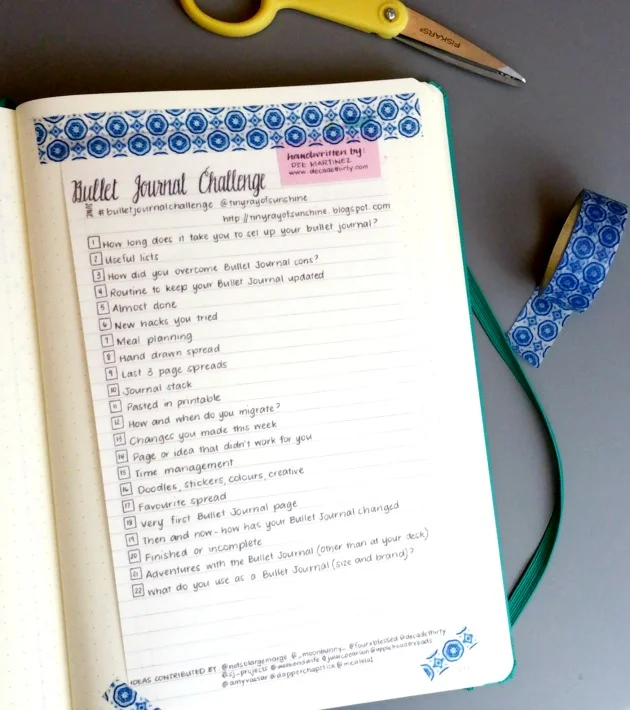 FISKARS
handwritten by:
DEE MARTINEZ
www.decadethirty.com
Bullet Journal Challenge
#bulletjournalchallenge @tinyrayofsunshine
http://tinyrayofsunshine.blogspot.com
1 How long does it take you to set up your bullet journal?
2 Useful lists
3 How did you overcome Bullet Journal cons?
4 Routine to keep your Bullet Journal updated
5 Almost done
6 New hacks you tried
7 Meal planning
8 Hand drawn spread
9 Last 3 page spreads
10 Journal stack
11 Pasted in printable
12 How and when do you migrate?
13 Changes you made this week
14 Page or idea that didn't work for you
15 Time management
16 Doodles, stickers, colours, creative
17 Favourite spread
18 Very first Bullet Journal page
19 Then and now - how has your Bullet Journal changed
20 Finished or incomplete
21 Adventures with the Bullet Journal (other than at your desk)
22 What do you use as a Bullet Journal (size and brand)?
IDEAS CONTRIBUTED BY @notsolargemarge @_moonbunny_ @fourxblessed @decadethirty